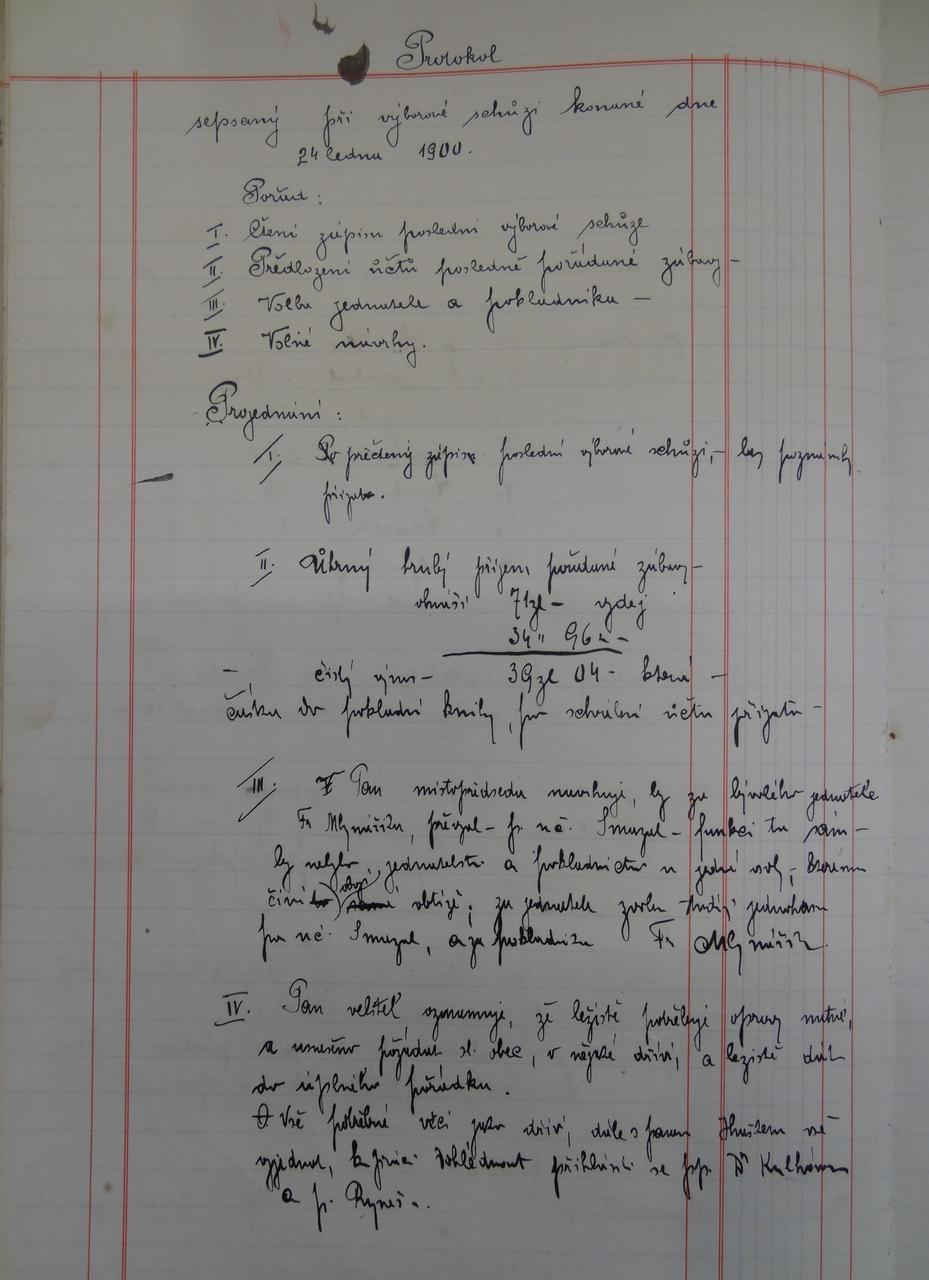 Protokol
sepsaný při výborové schůzi konané dne
24 ledna 1900.
Pořad:
I. Čtení zápisu poslední výborové schůze
II. Předložení účtů posledně pořádané zábavy –
III. Volba jednatele a pokladníka –
IV. Volné návrhy.
Projednání:
I. Po přečtený zápis poslední výborové schůzi, – bez poznámky
přijato.
II. Úhrný hrubý příjem pořádané zábavy –
obnáší 71zl – vydej
34 " 96 –
– čistý výnos – 39zl 04 – která –
částka do pokladní knihy, po schválení účtu přijata –
III. Pan místopředseda navrhuje, by za bývalého jednatele
Fr Mlynáříka, převzal – p. uč. Smazal – funkci tu sám –
by nebylo jednatelství a pokladnictví v jedné osoby, – kterému
činí obojí obtíže; za jednatele zvolen tudíž jednohlasně
pan uč. Smazal, a za pokladníka Fr Mlynářík.
IV. Pan velitel oznamuje, že ležiště potřebují opravy nutné,
a usneseno požádat sl. obec, o nějaké dříví, a ležiště dát
do úplného pořádku.
Vše potřebné věci jako dříví, dále s panem vše
vyjednat, ku práci dohlédnout přihlásili se pp.
a p. Ryneš.